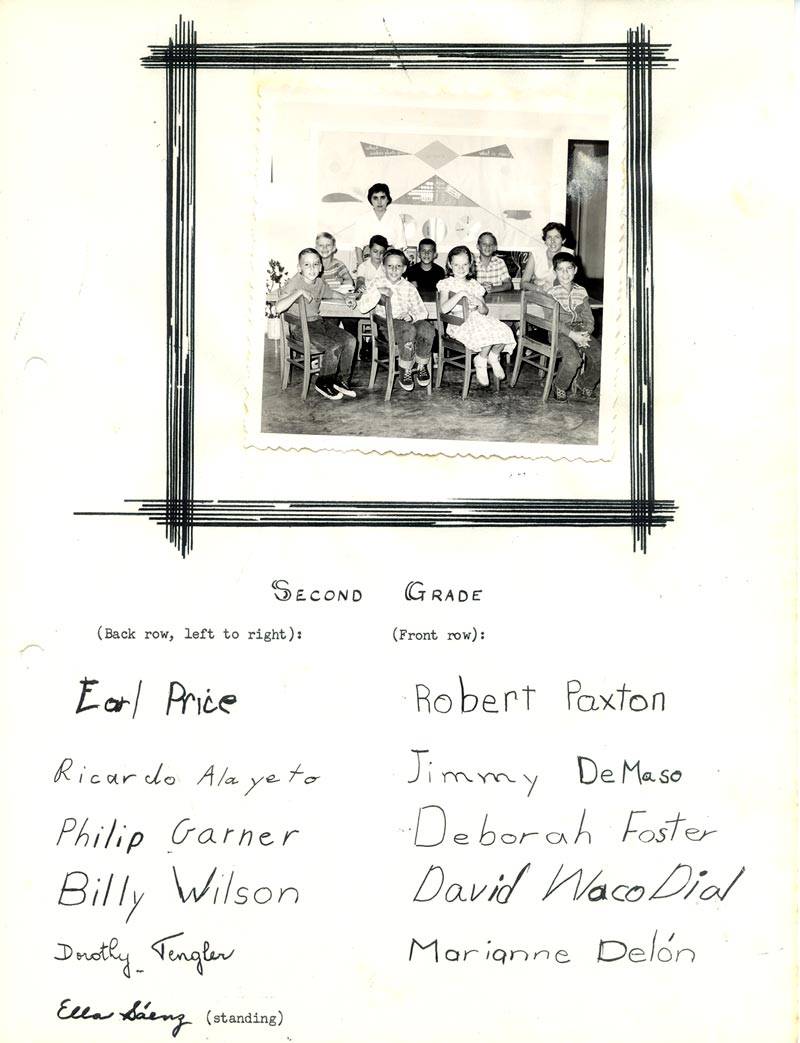 SECOND GRADE
(Back row, left to right):
(Front row):
Earl Price
Robert Paxton
Ricardo Alayeto
Jimmy DeMaso
Philip Garner
Deborah Foster
Billy Wilson
David Waco Dial
Dorothy Tengler
Marianne Delón
Ella Sáenz (standing)